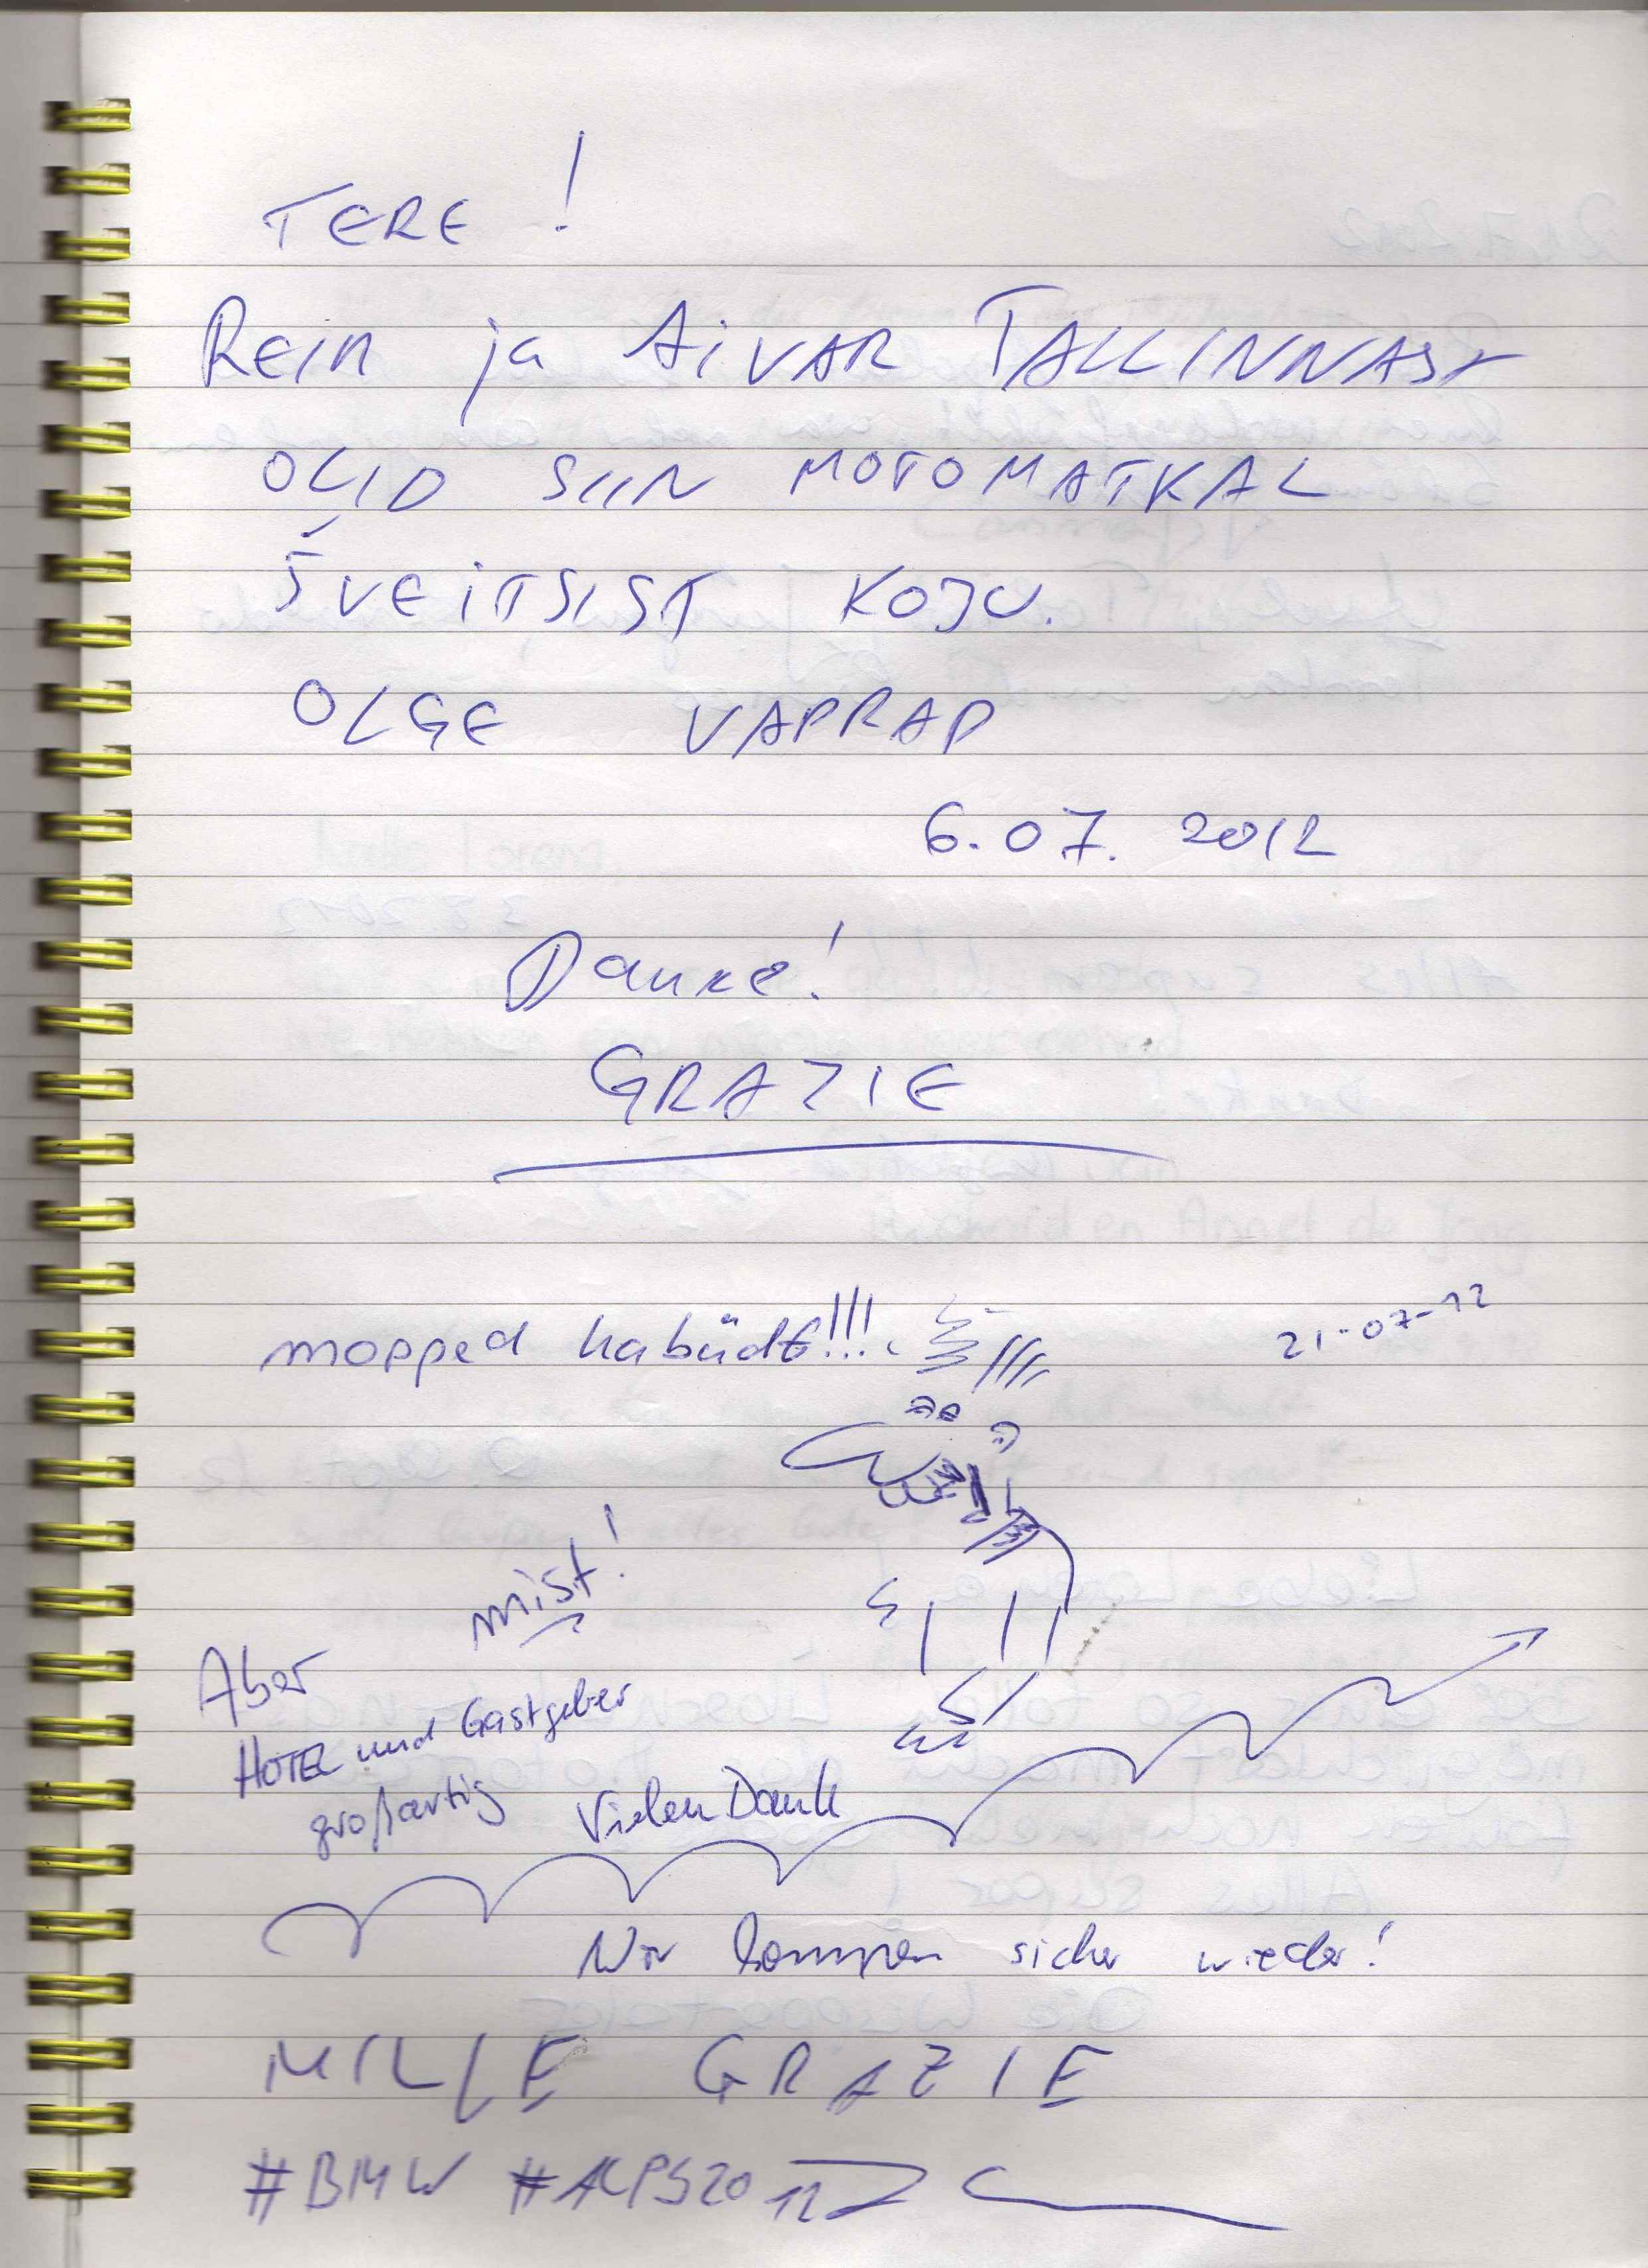 TERE !
REIN ja AiVAR TALLINNAST
OLID SIIN MOTOMATKAL
ŠVEiTSIST KOJU.
OLGE VAPRAD
6.07. 2012
Danke!
GRAZIE
mopped kabüdt!!!
21-07-12
mist!
Aber
HOTEL und Gastgeber
großartig
Vielen Dank
Wir kommen sicher wieder!
MILLE GRAZIE
#BMW #ALPS2012